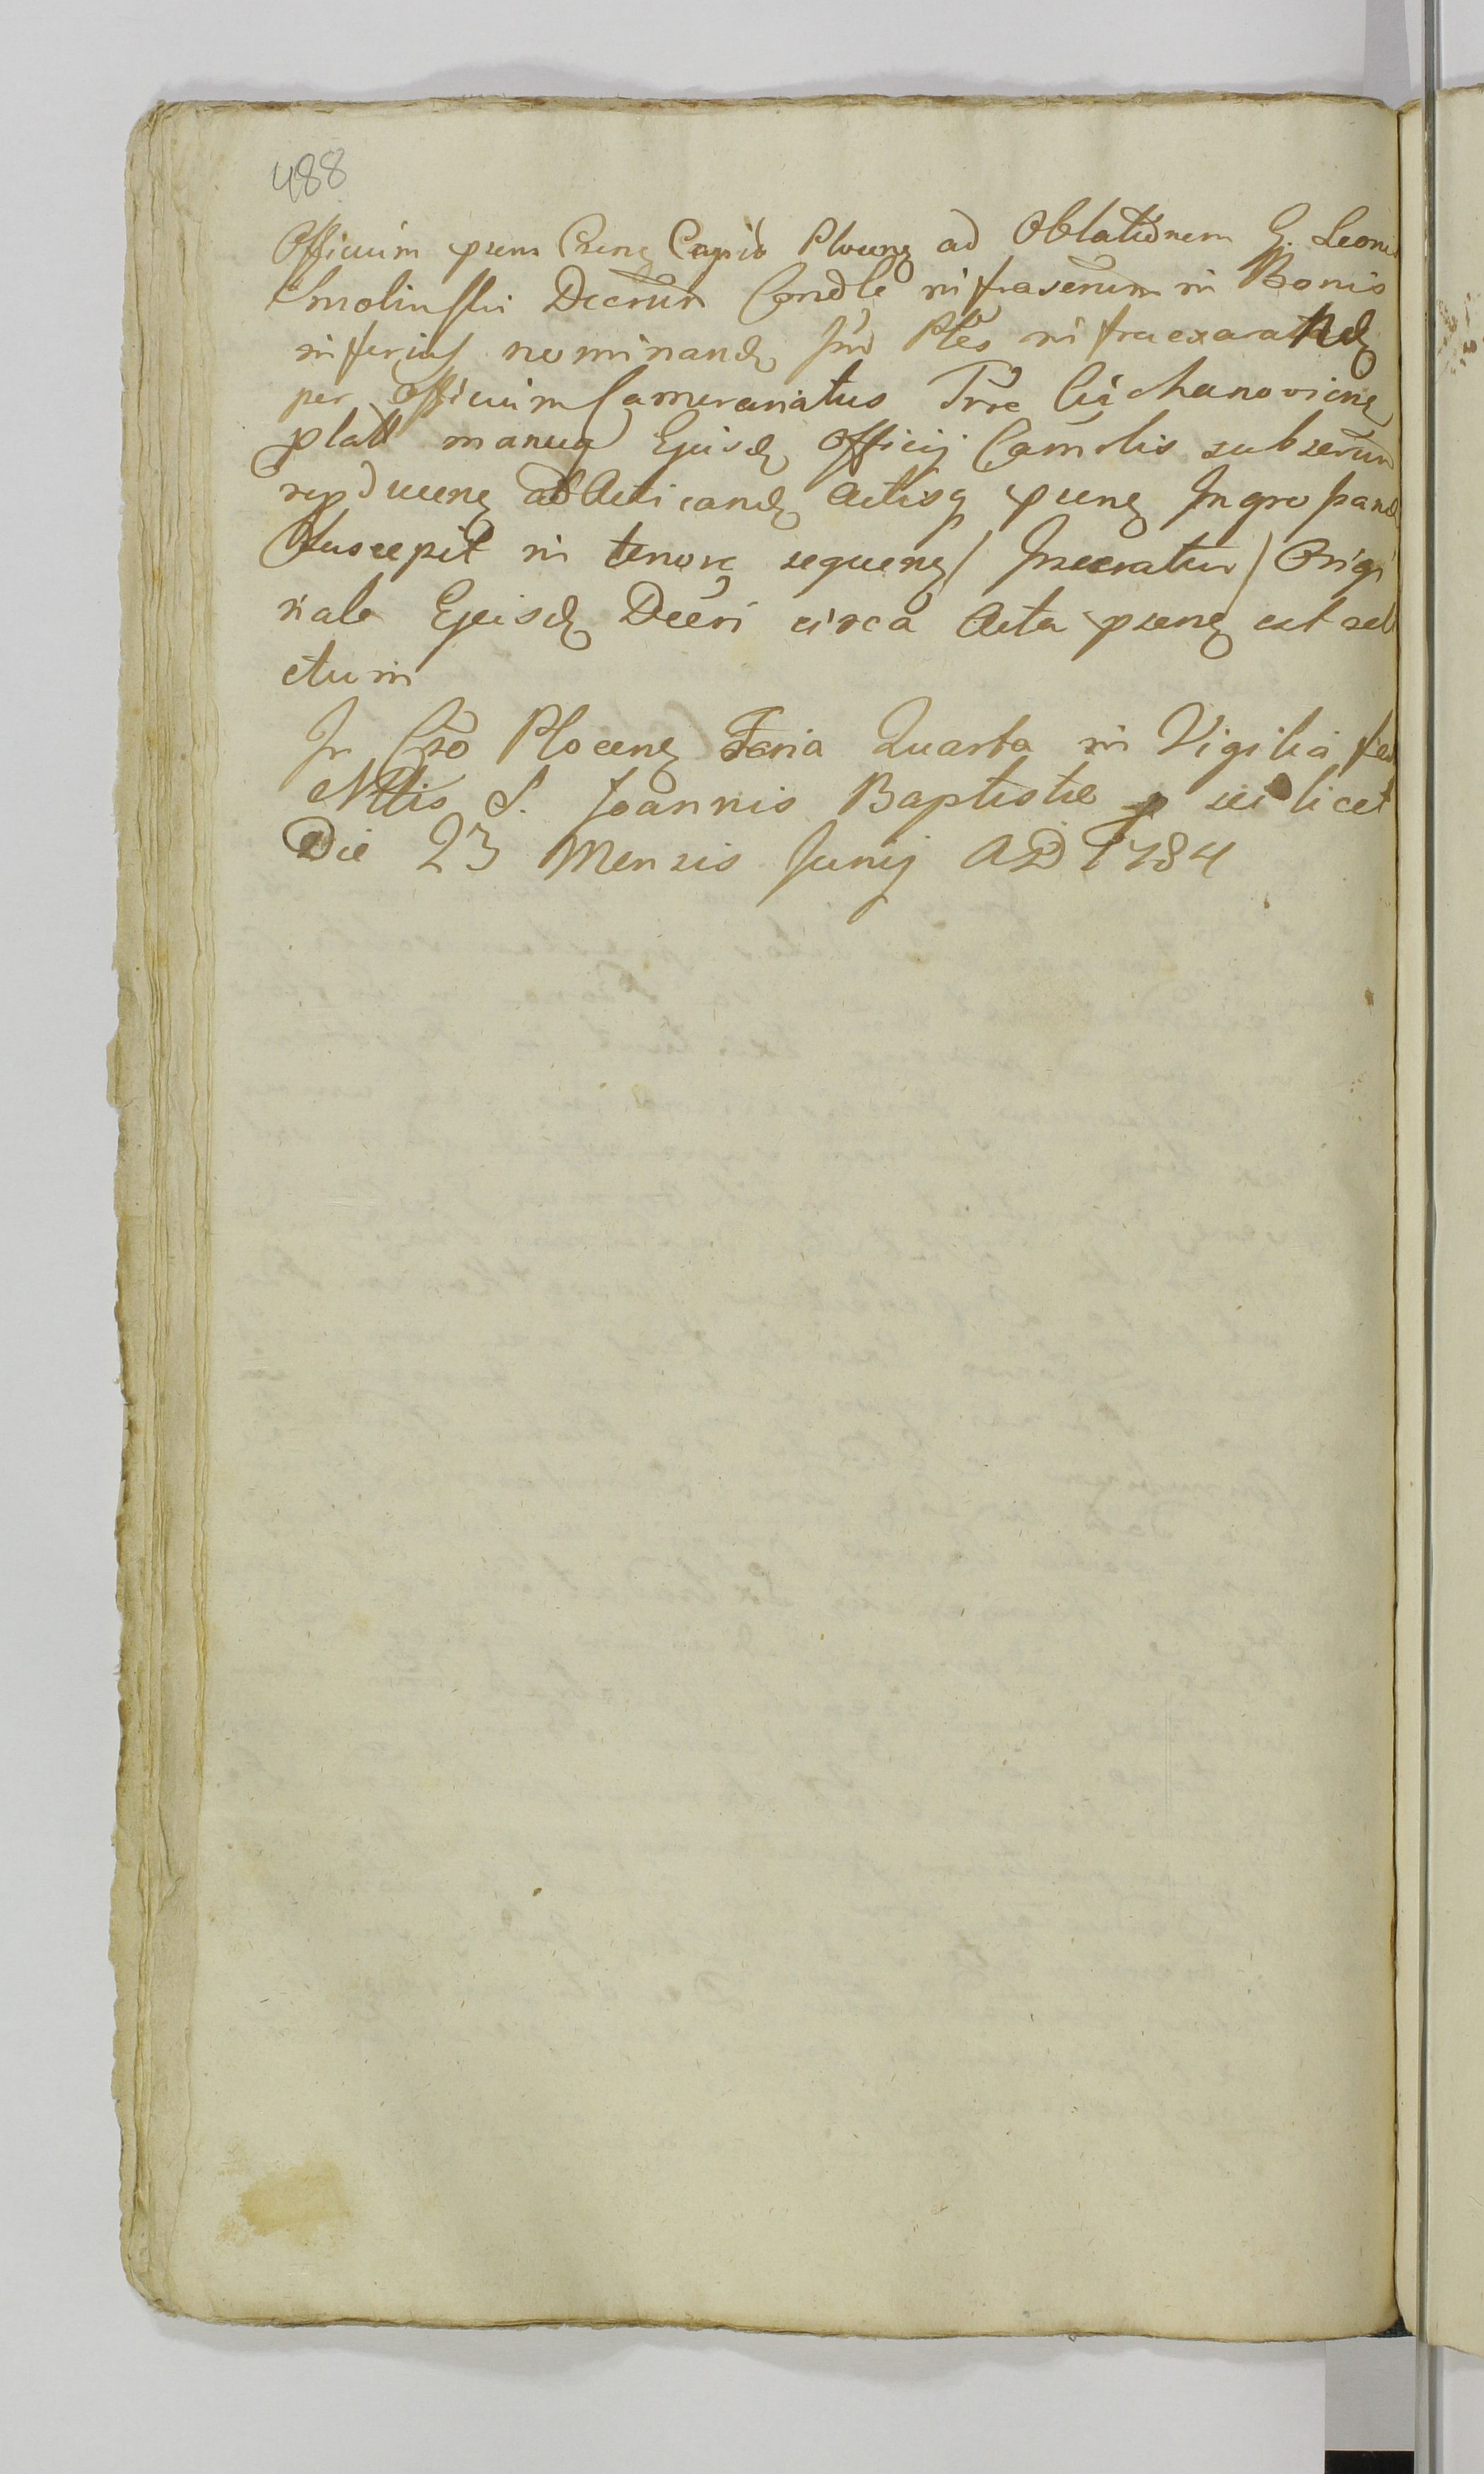 488
Officium præns Crñe Capitò Plocenę ad Oblationem G. Leonis
Smolinski Decrũm Condle infrascrũm in Bonis
inferius nominandę Inr Ptes infraexaratadę
per Officium Camerariatus Trræ Ciechanovienę
platt manuq Ejusdę Officij Camrlis subscrũm
reproducenę ad Acticandę Actisq prænę Ingrossandę
Suscepit in tenorę sequenę / Inseratur / Origi
nale Ejusdę Decri circa Acta prænę est reli
ctum
In Cro Plocenę Feria Quarta in Vigilia fes
Nttis S. Joannis Baptistæ scilicet
Die 23 Mensis Junij AD 1784